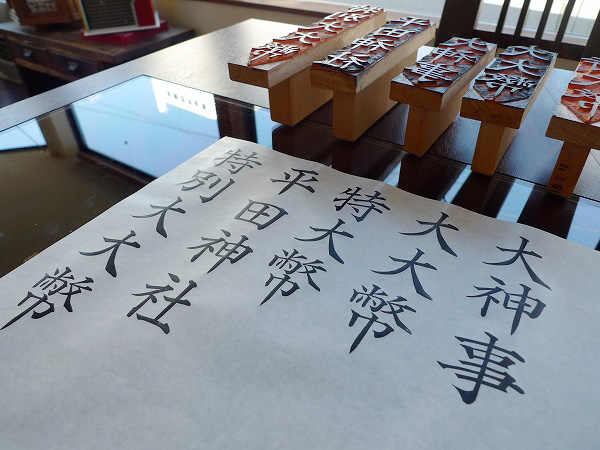 大神事
大大幣
特大幣
平田神社
特別大大幣